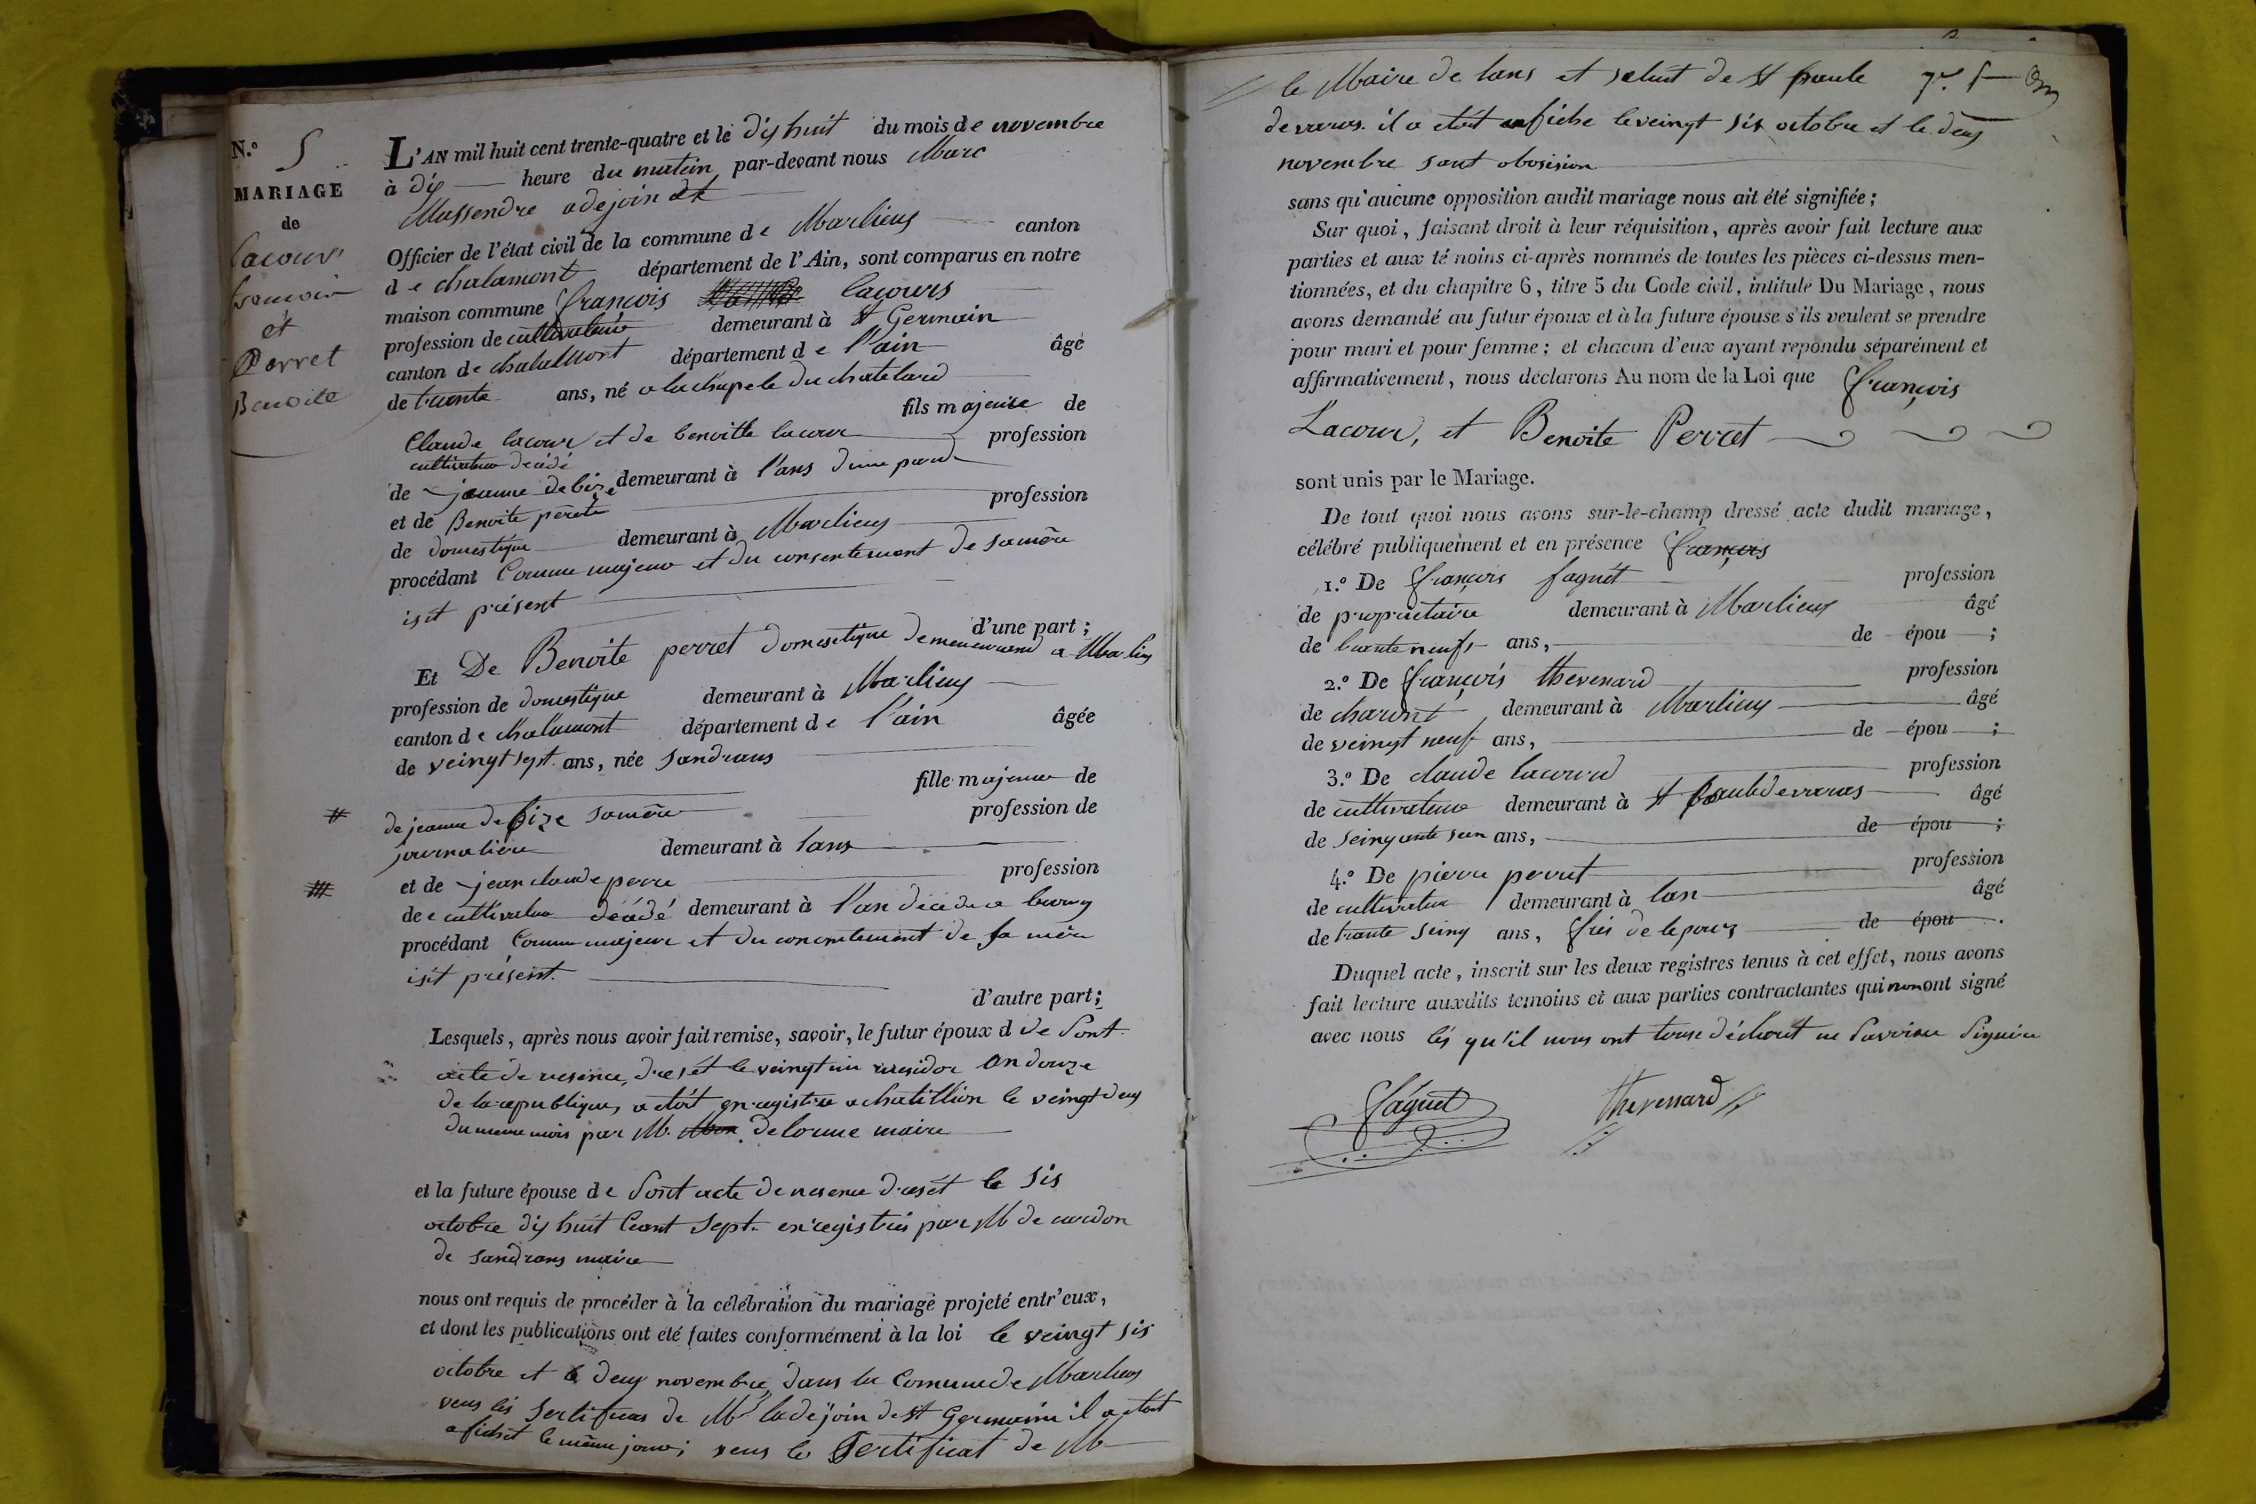 N.º 5
MARIAGE
de
Lacour
francois
et
Perret
Benoite
L'AN mil huit cent trente-quatre et le dix huit du mois de novembre
à dix heure du matin par-devant nous Marc
Mussendre adejoin
Officier de l'état civil de la commune de Marlieux canton
de chalamont département de l'Ain, sont comparus en notre
maison commune françois Lacours
profession de cultivateur demeurant à St Germain
canton de chalamont département de l'ain âgé
de trante ans, né a la chapele du chatelard
fils majeure de
Claude lacour et de benoitte lacour profession
cultivateur décédé
de jeanne debize demeurant à l'ans d'une part
et de Benoite perete profession
de domestique demeurant à Marlieux
procédant Comme majeur et du consentement de sa mère
isit présent
d'une part ;
Et De Benoite perret domestique demeurand a Marlieux
profession de domestique demeurant à Marlieux
canton de chalamont département de l'ain âgée
de veingt sept ans, née sandrans
fille majeure de
# de jeanne debize sa mère profession de
journalière demeurant à lans
# et de jean claude perre profession
de cultivateur décédé demeurant à l'an décédé a bourg
procédant Comme majeure et du consentement de sa mère
isit présent
d'autre part ;
Lesquels, après nous avoir fait remise, savoir, le futur époux d de sont
acte de nesence, dresét le veingt un mesidor an douze
de la republique, a étét enregistre a chatillion le veingt deux
du meme mois par M. delorme maire
et la future épouse de sont acte de nesence dresét le sis
octobre dix huit Cent sept enregistrés par M de cardon
de sandrans maire
nous ont requis de procéder à la célébration du mariage projeté entr'eux,
et dont les publications ont été faites conformément à la loi le veingt sis
octobre et le deux novembre dans la Commune de Marlieux
veus lés sertificas de Mr ladejoin de St Germain il a étét
afichét le même jour ; veus le Sertificat de M
le Maire de lans et seluit de St paule
de varas. il a étét afiche le veingt sis octobre et le deux
novembre sant obosision
sans qu'aucune opposition audit mariage nous ait été signifiée ;
Sur quoi, faisant droit à leur réquisition, après avoir fait lecture aux
parties et aux té noins ci-après nommés de toutes les pièces ci-dessus men-
tionnées, et du chapitre 6, titre 5 du Code civil, intitulé Du Mariage, nous
avons demandé au futur époux et à la future épouse s'ils veulent se prendre
pour mari et pour femme ; et chacun d'eux ayant répondu séparément et
affirmativement, nous déclarons Au nom de la Loi que françois
Lacour, et Benoite Perret
sont unis par le Mariage.
De tout quoi nous avons sur-le-champ dressé acte dudit mariage,
célébré publiquement et en présence françois
1.º De françois faguét profession
de propriétaire demeurant à Marlieux âgé
de trante neufs ans, de épou ;
2.º De françois thevenard profession
de charont demeurant à Marlieux âgé
de veingt neuf ans, de épou ;
3.º De claude lacourd profession
de cultivateur demeurant à St paule de varas âgé
de seinquante ans, de épou ;
4.º De pierre perret profession
de cultivateur demeurant à lan âgé
de trante seinq ans, frés de lepouz de épou .
Duquel acte, inscrit sur les deux registres tenus à cet effet, nous avons
fait lecture auxdits temoins et aux parties contractantes qui non ont signé
avec nous lés qu'il nous ont touse déclarét ne savoire signére
faguet
thevenard